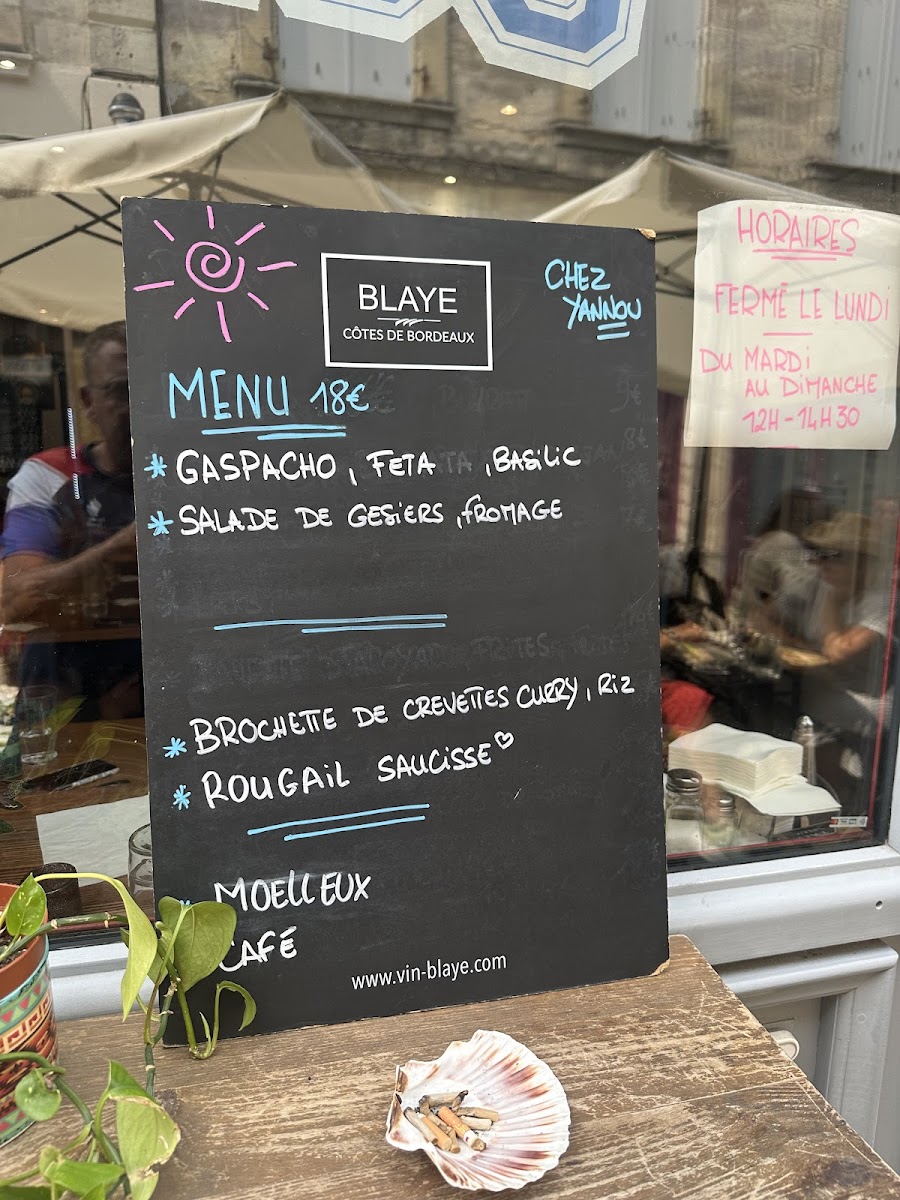 BLAYE
CÔTES DE BORDEAUX
CHEZ
YANNOU
MENU 18€
* GASPACHO, FETA, BASILIC
* SALADE DE GESIERS, FROMAGE
* BROCHETTE DE CREVETTES CURRY, RIZ
* ROUGAIL SAUCISSE
MOELLEUX
CAFÉ
www.vin-blaye.com
HORAIRES
FERMÉ LE LUNDI
DU MARDI
AU DIMANCHE
12H-14H30